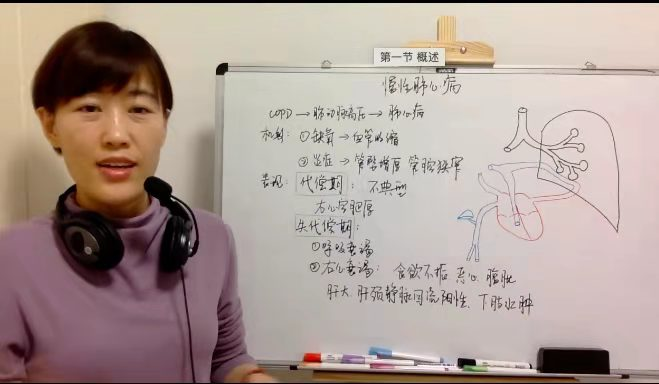 第一节 概述
慢性肺心病
COPD → 肺动脉高压 → 肺心病
机制: ①缺氧 → 血管收缩
②炎症 → 管壁增厚 管腔狭窄
表现: 代偿期: 不典型
右心室肥厚
失代偿期:
①呼吸衰竭
②右心衰竭: 食欲不振 恶心 腹胀
肝大 肝颈静脉回流阳性、下肢水肿